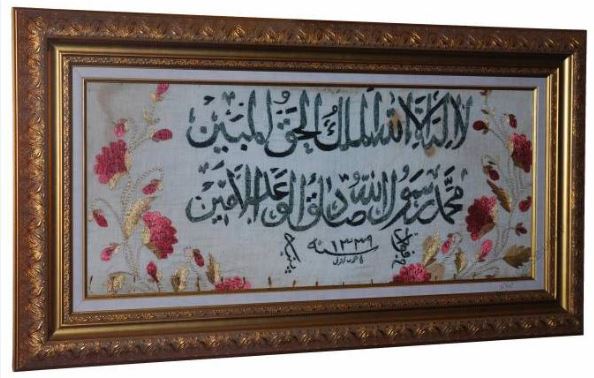 لا إله إلا الله الملك الحق المبين
محمد رسول الله صادق الوعد الأمين
سنه ١٣٣٩